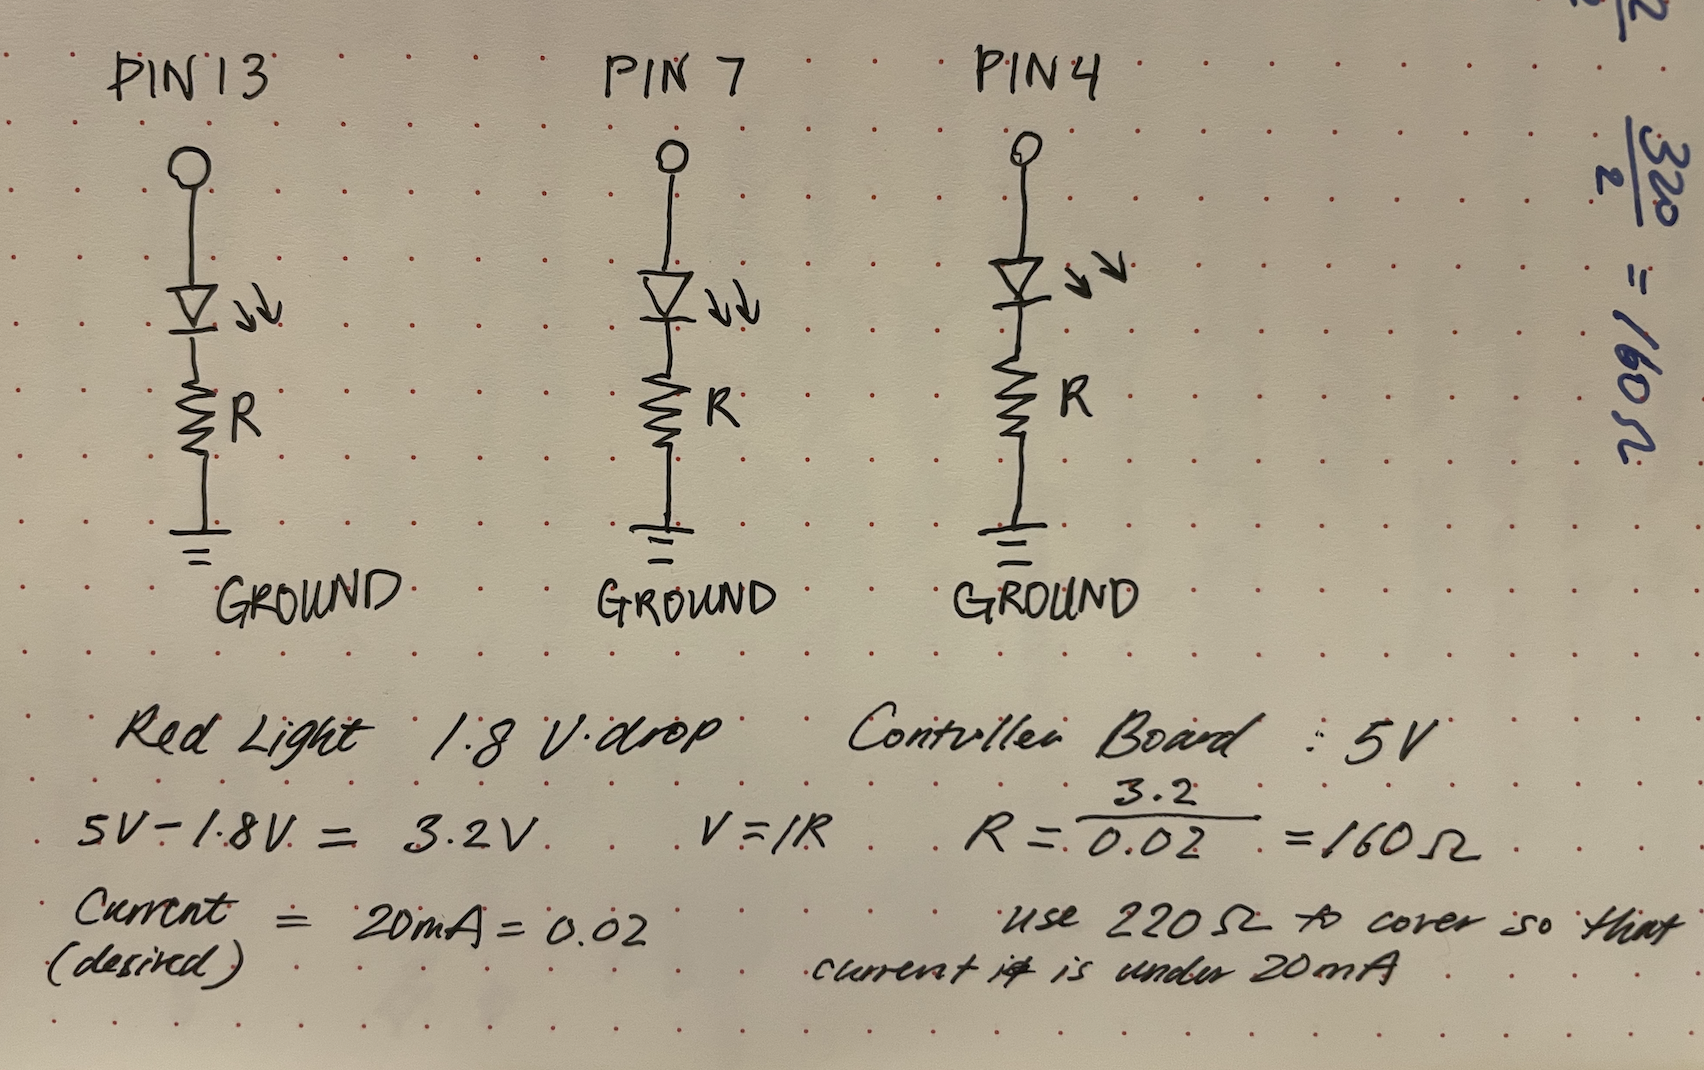 PIN 13 PIN 7 PIN 4
R R R
GROUND GROUND GROUND
Red Light 1.8 V.drop Controller Board : 5V
5V-1.8V = 3.2V V=IR R = 3.2 / 0.02 = 160Ω
Current (desired) = 20mA = 0.02
use 220Ω to cover so that
current is under 20mA
320 / 2 = 160Ω